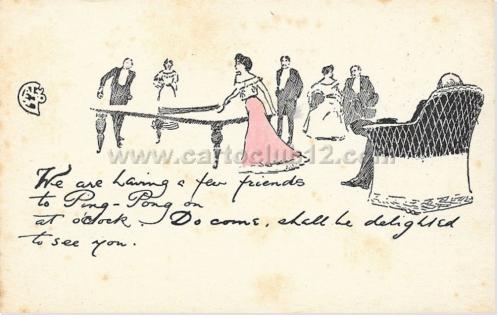 www.cartoclub12.com
We are having a few friends
to Ping-Pong on
at o'clock. Do come, shall be delighted
to see you.